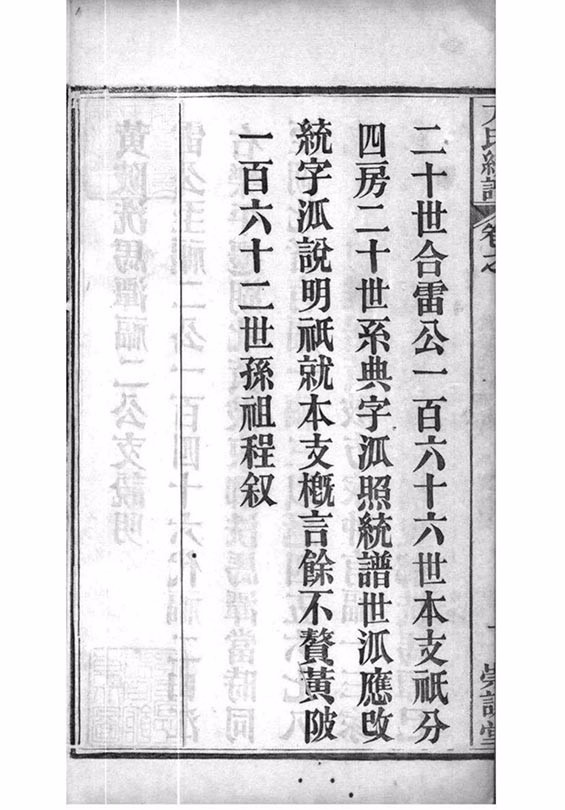 二十世合雷公一百六十六世本支祇分
四房二十世系典字派照統譜世派應改
統字派說明祇就本支概言餘不贅黃陂
一百六十二世孫祖程叙
方氏統譜 卷之
崇讓堂